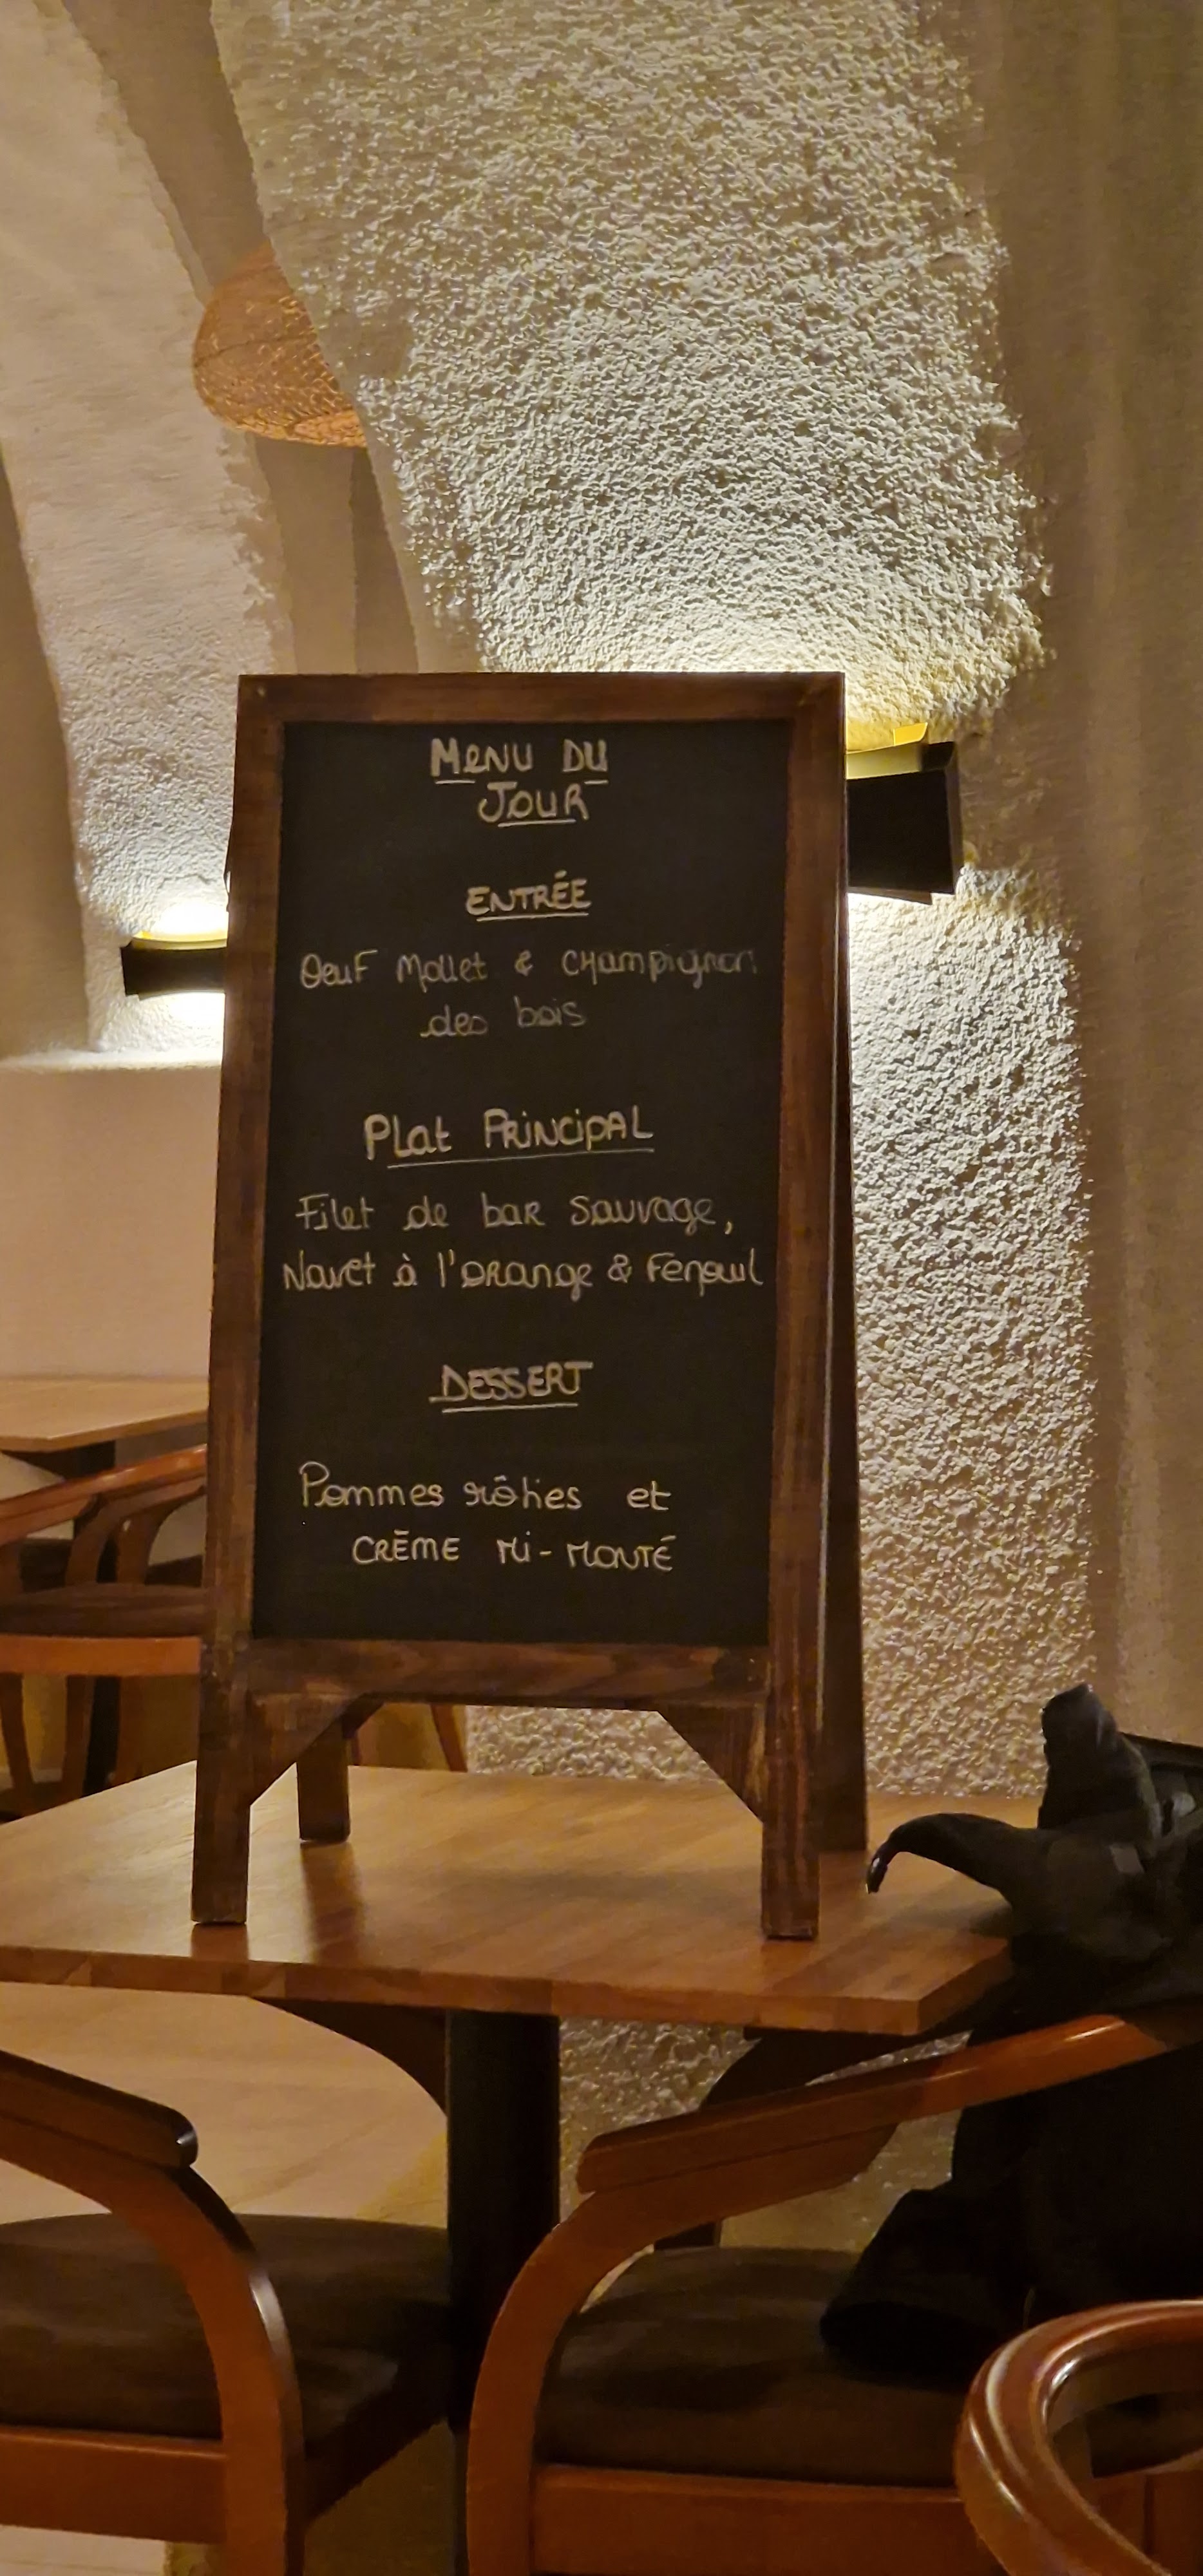 MENU DU
JOUR
ENTRÉE
Oeuf Mollet & Champignon
des bois
Plat PRINCIPAL
Filet de bar Sauvage,
Navet à l'orange & Fenouil
DESSERT
Pommes rôties et
CRÈME Mi-MONTÉ